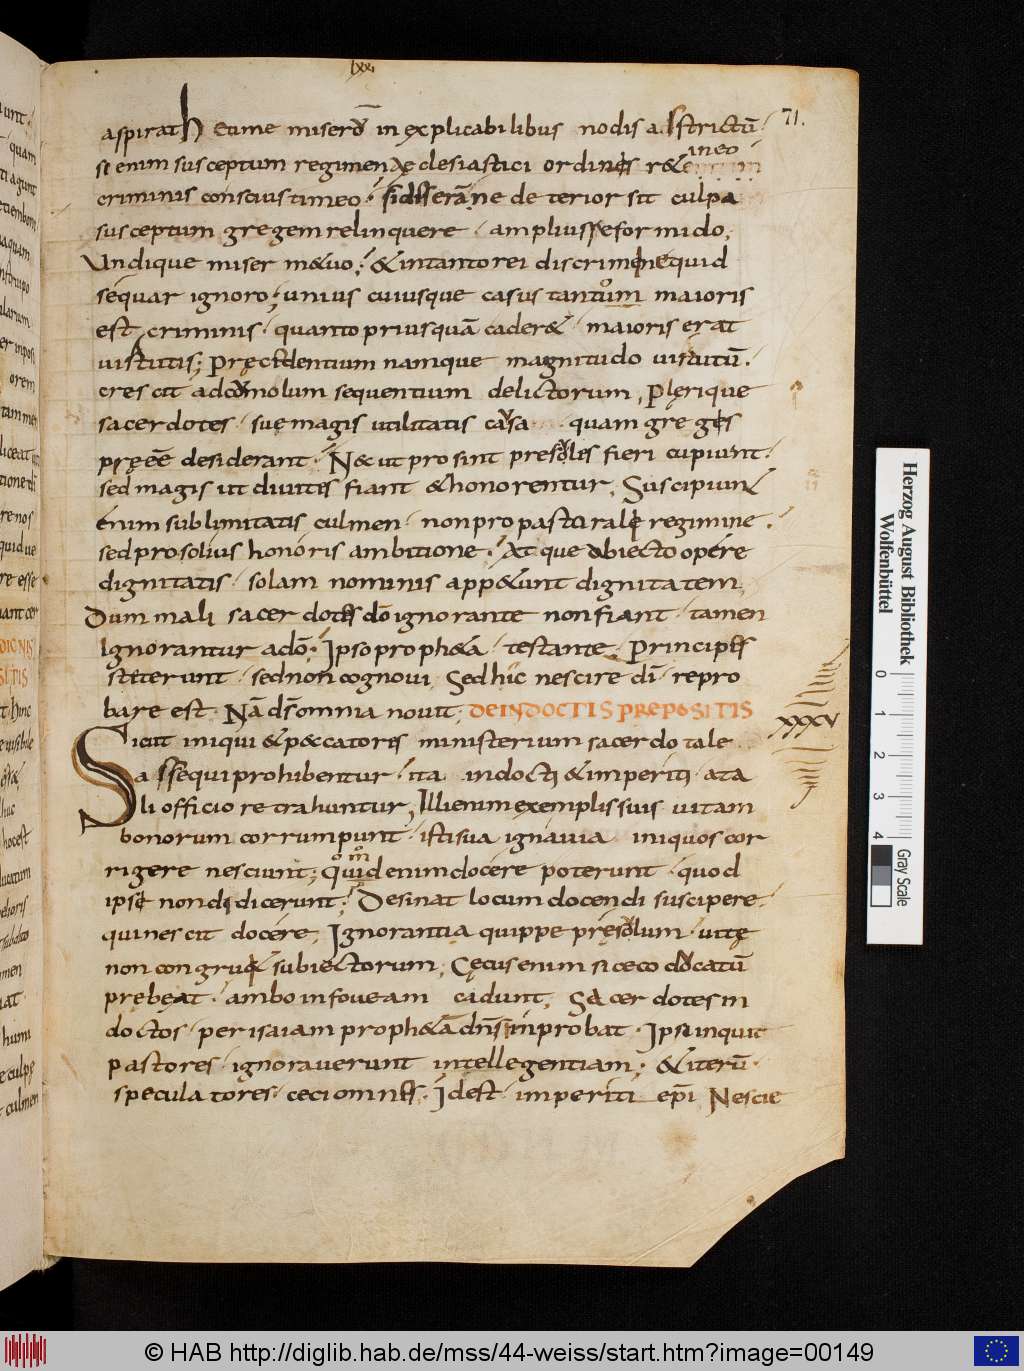 lxxi
71.
aspirat h Eume miserū inexplicabilibus nodis astrictū
si enim susceptum regimen aecclesiastici ordinis r&ineo
criminis conscius timeo. si deseram ne deterior sit culpa
susceptum gregem relinquere. amplius reformido,
Undique miser m&uo; & in tanto rei discrimine quid
sequar ignoro; unius cuiusque casus tanto maioris
est criminis. quanto priusquā cader& maioris erat
uirtutis; Pręcedentium namque magnitudo uirtutū.
crescit ad cumolum sequentium delictorum, Plęrique
sacerdotes. sue magis utilitatis causa quam gregis
pręēē desiderant. N& ut prosint presules fieri cupiunt.
sed magis ut diuites fiant & honorentur. Suscipiunt
enim sublimitatis culmen. non pro pastorali regimine.
sed pro solius honoris ambitione. Atque abiecto opere
dignitatis. solam nominis app&unt dignitatem
Dum mali sacerdotes dō ignorante non fiant. tamen
Ignorantur adō. Ipso proph&a. testante. Principes
steterunt. sed non cognoui. Sed hic nescire dī. repro
bare est. Nā dn̄s omnia nouit; DE INDOCTIS PREPOSITIS
XXXV
Sicut iniqui & peccatores ministerium sacerdotale
assequi prohibentur. ita indocti & imperiti ata
li officio retrahuntur, Illi enim exemplis suis uitam
bonorum corrumpunt. isti sua ignauia iniquos cor
rigere nesciunt; quomodo enim docere poterunt. quod
ipsi non didicerunt; Desinat locum docendi suscipere.
qui nescit docere; Ignorantia quippe pręsulum. uitę
non congruit subiectorum; Cęcus enim si ceco ducatū
prebeat. ambo in foueam cadunt; Sacerdotes in
doctos. per isaiam proph&ā dn̄s inprobat. Ipsi inquit
pastores. ignorauerunt intellegentiam; & iterū.
speculatores. ceci omnes. Idest. imperiti epī Nescie
Herzog August Bibliothek
Wolfenbüttel
0 1 2 3 4
Gray Scale
© HAB http://diglib.hab.de/mss/44-weiss/start.htm?image=00149